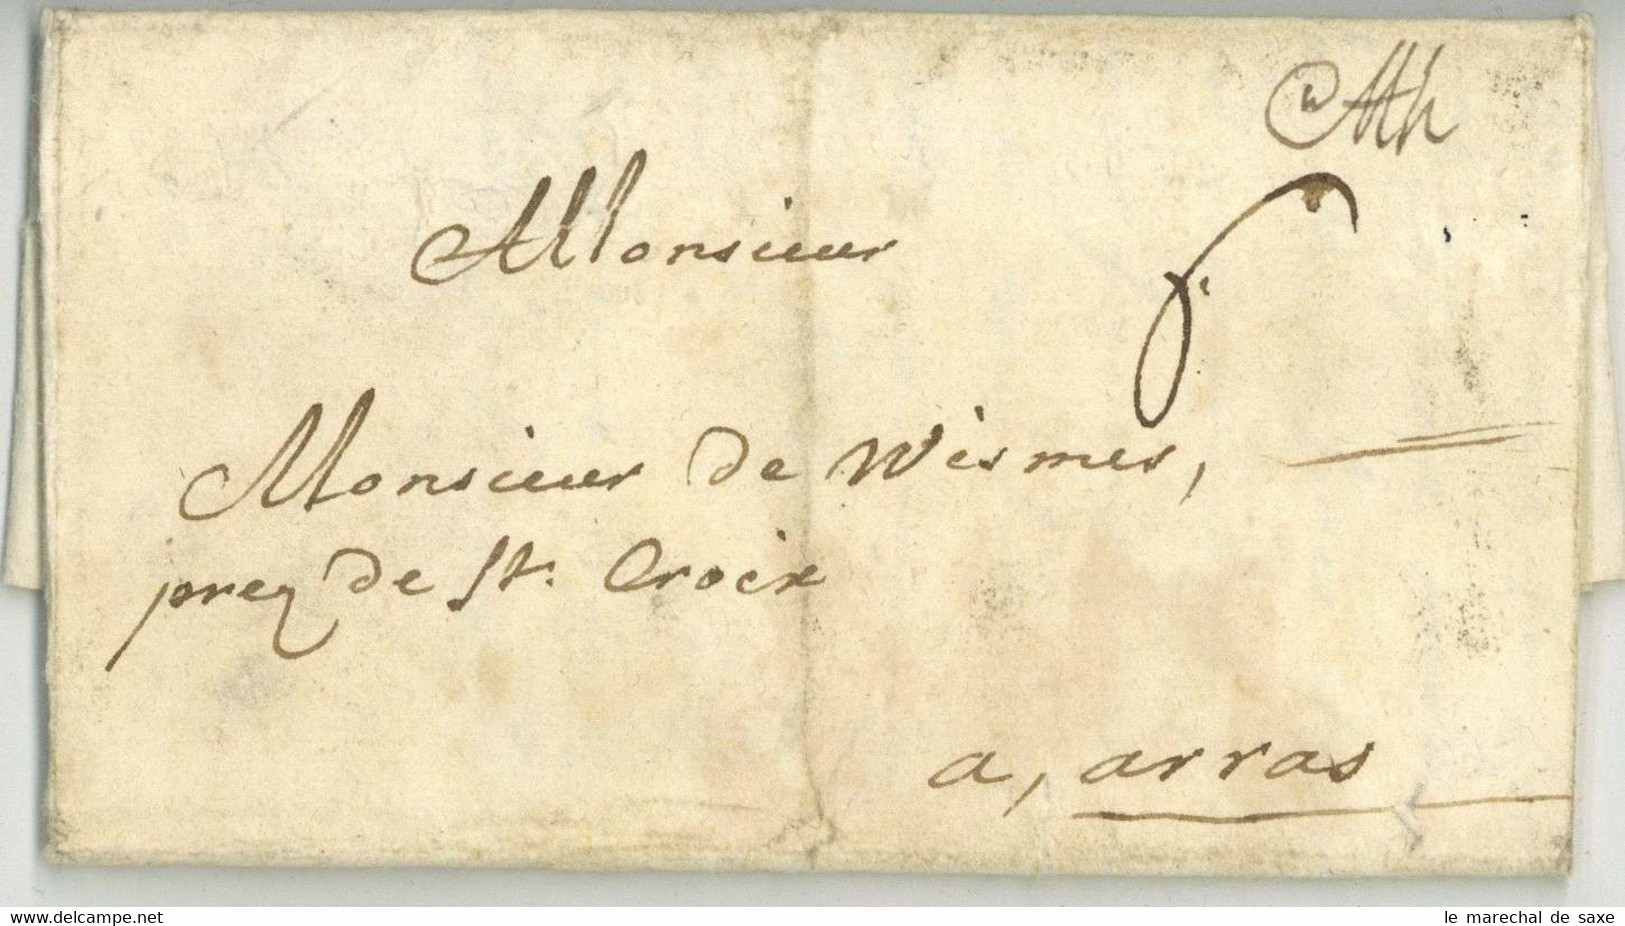 Ath
Monsieur
Monsieur de Wismes,
prez de St. Croix
a, arras
www.delcampe.net
le marechal de saxe